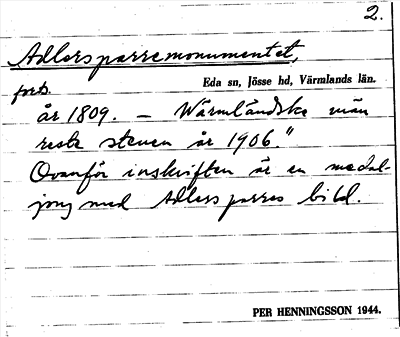 2.
Adlersparremonumentet,
forts.
Eda sn, Jösse hd, Värmlands län.
år 1809. – Wärmländske män
reste stenen år 1906."
Ovanför inskriften är en medal-
jong med Adlersparres bild.
PER HENNINGSSON 1944.